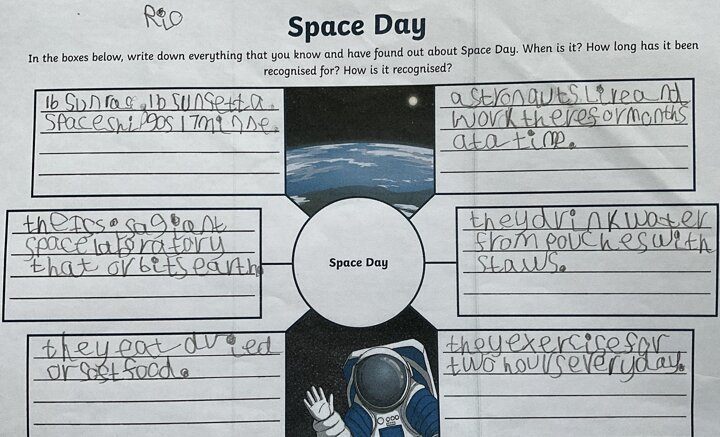 Rio
Space Day
In the boxes below, write down everything that you know and have found out about Space Day. When is it? How long has it been
recognised for? How is it recognised?
16 sunras. 16 sunset a.
spaceship gos 17
astronauts live and
work theres for months
at a time.
the Iss. is a giant
space labratory
that orbits earth
Space Day
they drink water
from pouches with
staws.
they eat dried
or soft food.
they exercise for
two hours every day.